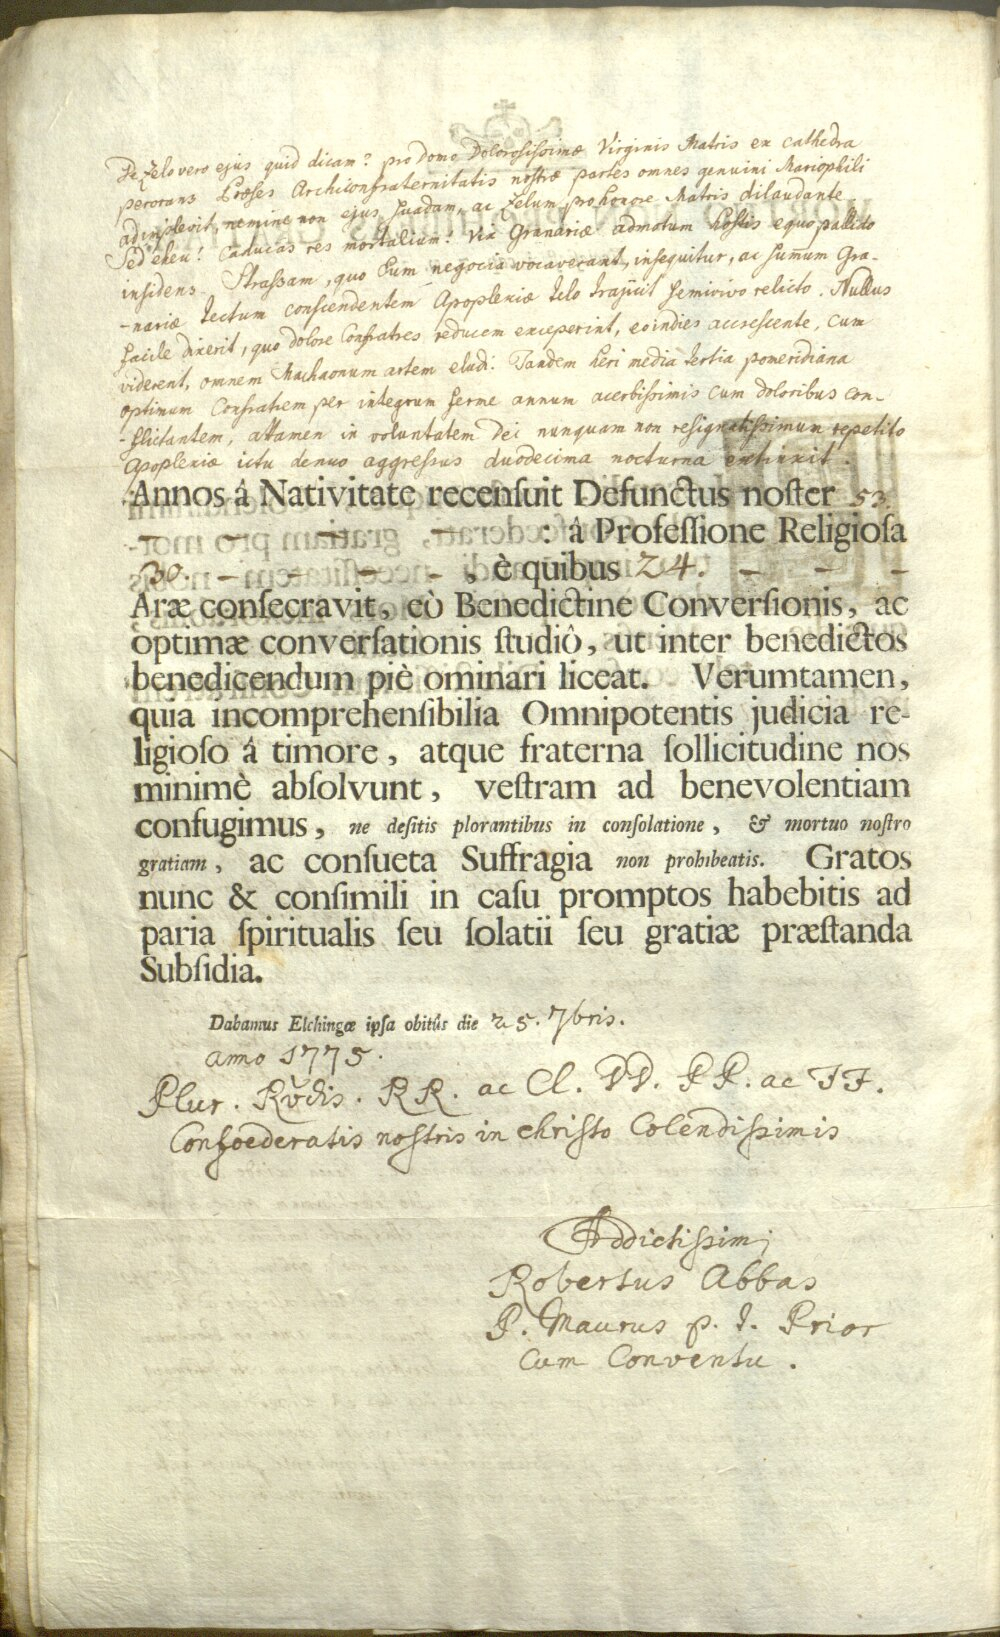 De Zelo vero ejus quid dicam? pro Domo Dolorosissimæ Virginis Matris ex cathedra
perorans Præses Archiconfraternitatis nostræ partes omnes genuini Mariophili
adimplevit, nemine non ejus suadam, ac zelum pro honore Matris dilaudante.
Sed eheu! caducas res mortalium! Vix Granariæ admotum hostis equo pallido
insidens Strassam, quo Eum negocia vocaverant, insequitur, ac sum̅um Gra-
-nariæ tectum conscendentem Apoplexiæ telo trajicit semivivo relicto. Nullus
facile dixerit, quo dolore Confratres reducem exceperint, eoindies accrescente, cum
viderent, omnem Machaonum artem eludi. Tandem heri media tertia pomeridiana
optimum Confratrem per integrum ferme annum acerbissimis cum doloribus con-
-flictantem, attamen in voluntatem Dei nunquam non resignatissimum repetito
Apoplexiæ ictu denuo aggressus duodecima nocturna extinxit.
Annos â Nativitate recensuit Defunctus noster 53
– – – – – : â Professione Religiosa
30. – – – – , è quibus 24. – – –
Aræ consecravit, eò Benedictinæ Conversionis, ac
optimæ conversationis studiô, ut inter benedictos
benedicendum piè ominari liceat. Verumtamen,
quia incomprehensibilia Omnipotentis judicia re-
ligioso â timore, atque fraterna sollicitudine nos
minimè absolvunt, vestram ad benevolentiam
confugimus, ne desitis plorantibus in consolatione, & mortuo nostro
gratiam, ac consueta Suffragia non prohibeatis. Gratos
nunc & consimili in casu promptos habebitis ad
paria spiritualis seu solatii seu gratiæ præstanda
Subsidia.
Dabamus Elchingæ ipsa obitûs die 25. 7bris.
anno 1775.
Plur. Rvdis. RR. ac Cl. DD. PP. ac FF.
Confoederatis nostris in christo Colendissimis
Addictissimi
Robertus Abbas
P. Maurus p. t. Prior
cum Conventu.